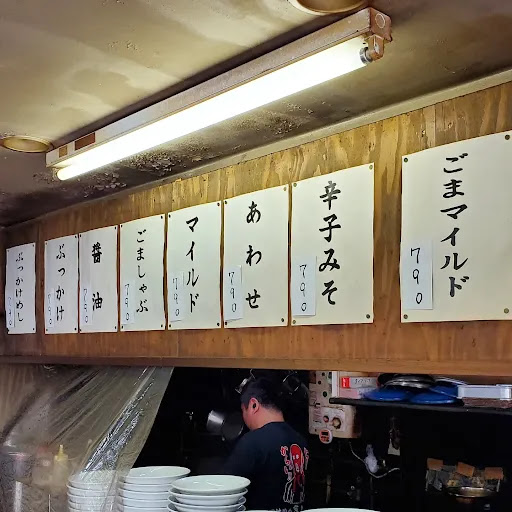 ごまマイルド
790
辛子みそ
790
あわせ
790
マイルド
790
ごましゃぶ
790
醤油
790
ぶっかけ
790
ぶっかけめし